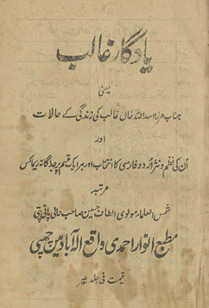 یادگار غالب
یعنی
جناب مرزا اسد اللہ خاں غالب کی زندگی کے حالات
اور
اُن کی نظم و نثر اُردو فارسی کا انتخاب اور ہر ایک قسم پر جداگانہ ریمارکس
مرتبہ
شمس العلماء مولوی الطاف حسین صاحب حالی پانی پتی
مطبع انوار احمدی واقع الہ آباد میں چھپی
قیمت فی جلد